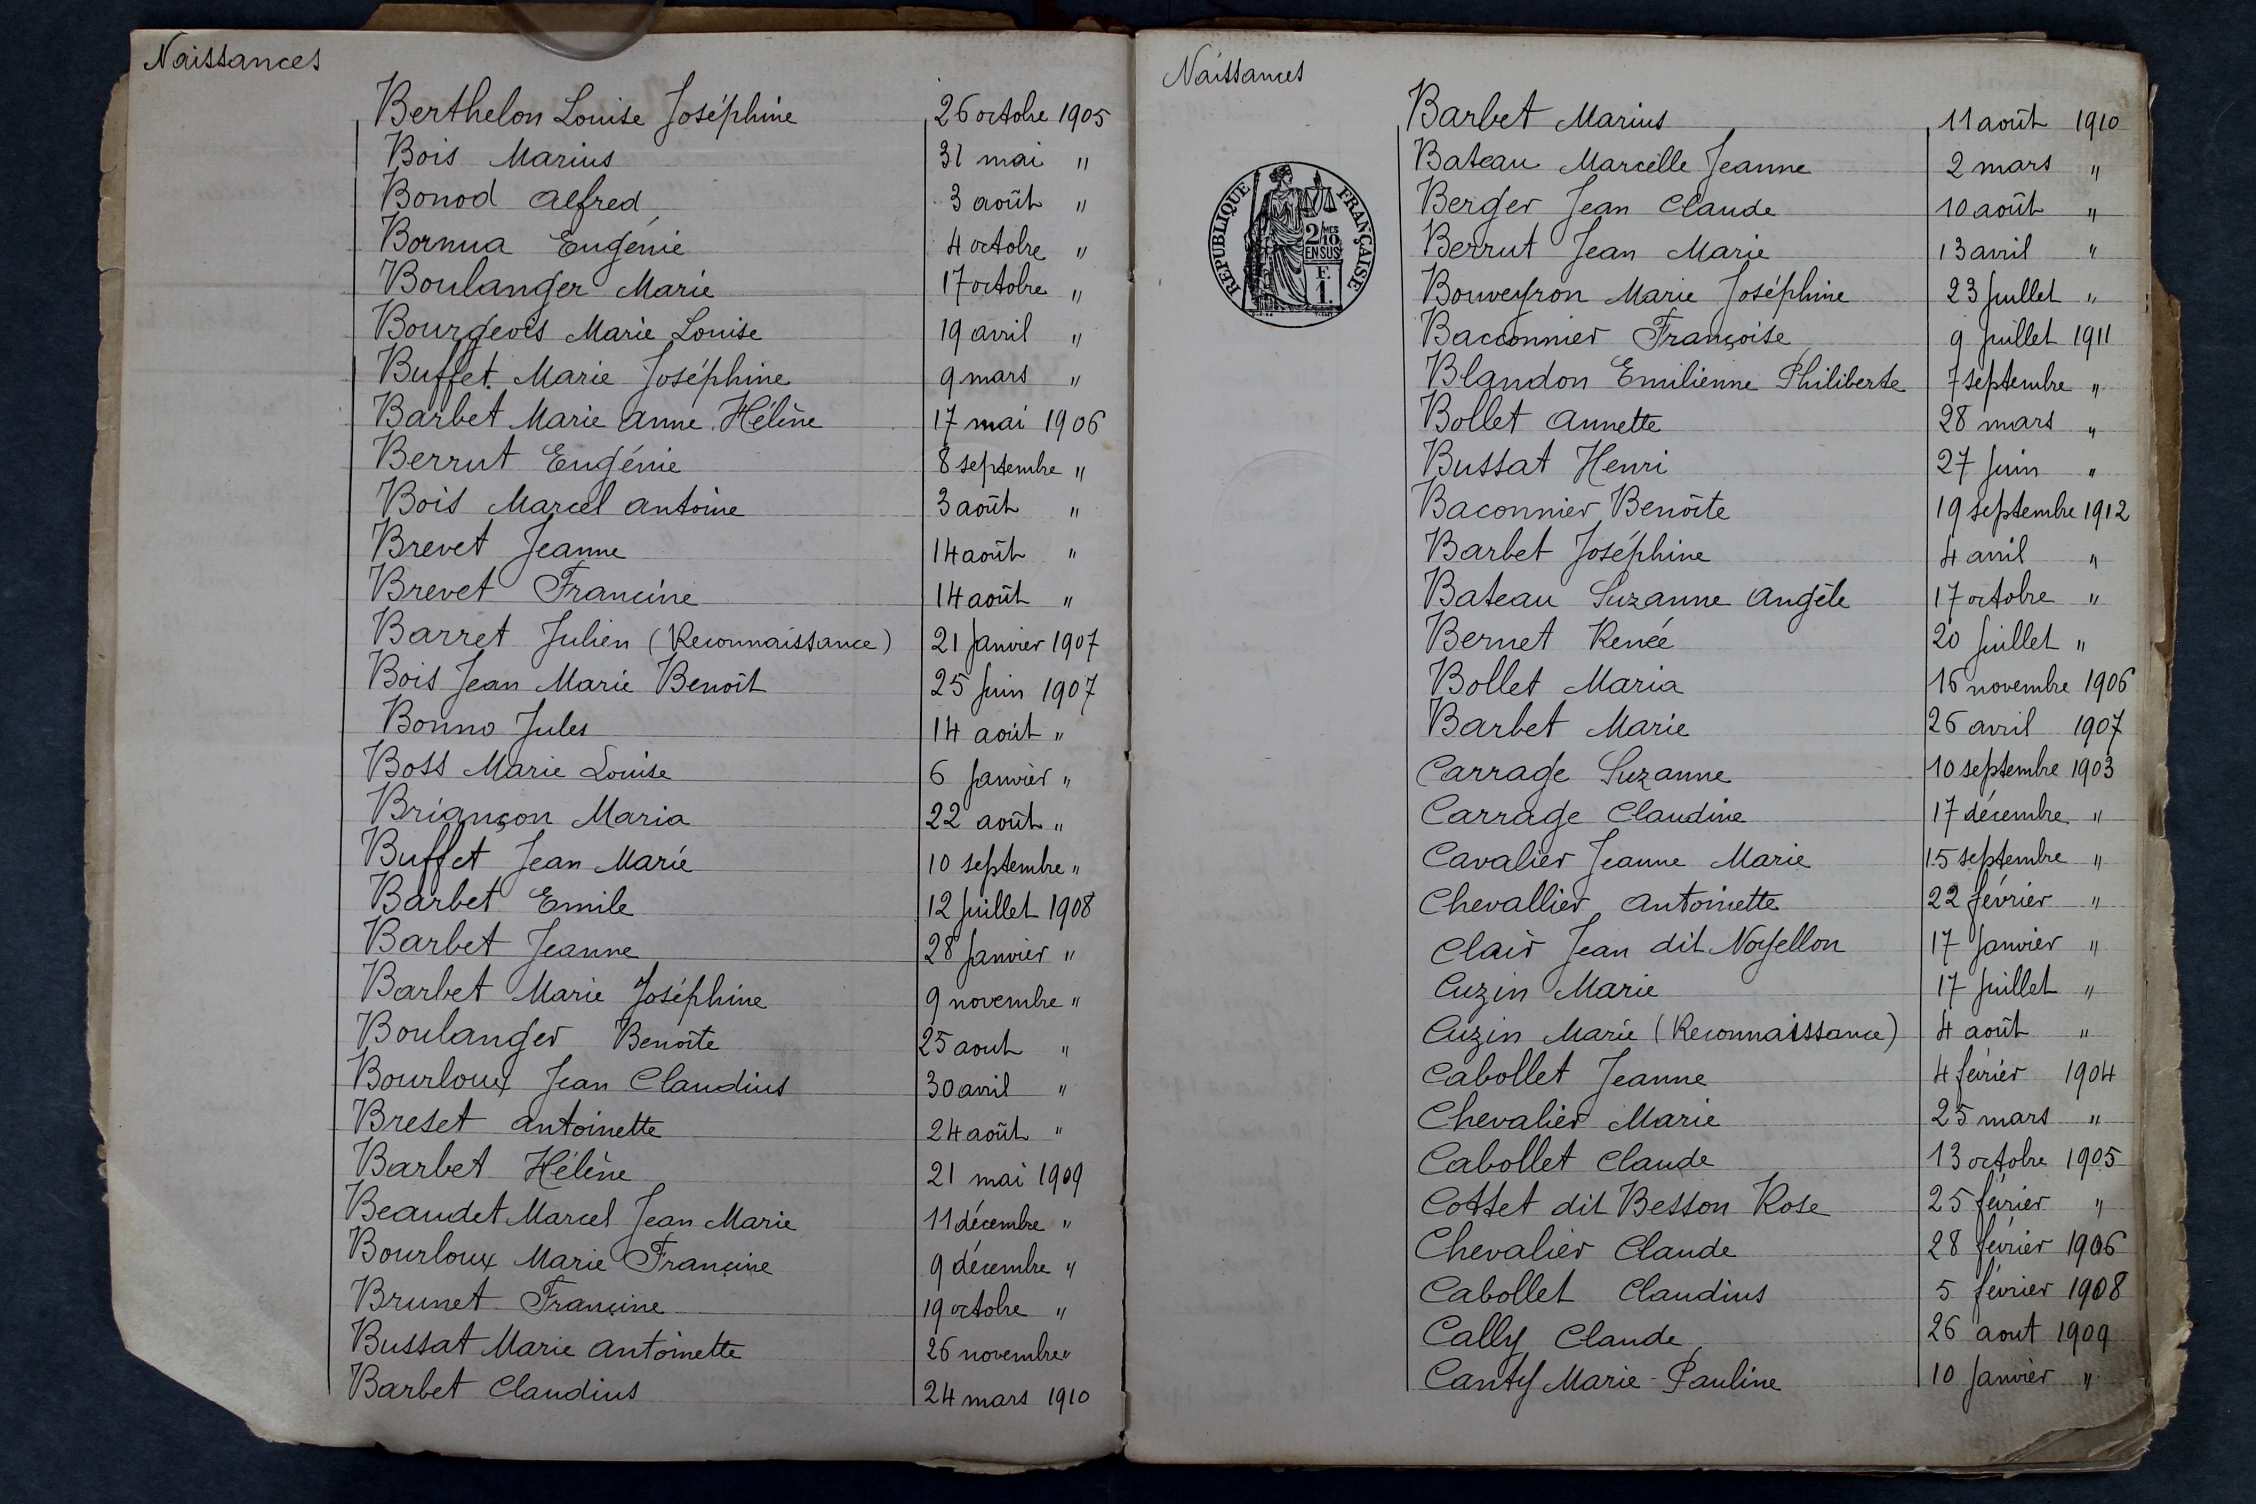 Naissances
Berthelon Louise Joséphine 26 octobre 1905
Bois Marius 31 mai "
Bonod Alfred 3 août "
Bornua Eugénie 4 octobre "
Boulanger Marie 17 octobre "
Bourgeois Marie Louise 19 avril "
Buffet Marie Joséphine 9 mars "
Barbet Marie Anne Hélène 17 mai 1906
Berrut Eugénie 8 septembre "
Bois Marcel Antoine 3 août "
Brevet Jeanne 14 août "
Brevet Francine 14 août "
Barret Julien (Reconnaissance) 21 Janvier 1907
Bois Jean Marie Benoît 25 Juin 1907
Bonno Jules 14 août "
Boss Marie Louise 6 Janvier "
Briançon Maria 22 août "
Buffet Jean Marie 10 septembre "
Barbet Emile 12 Juillet 1908
Barbet Jeanne 28 Janvier "
Barbet Marie Joséphine 9 novembre "
Boulanger Benoîte 25 aout "
Bourloux Jean Claudius 30 avril "
Breset Antoinette 24 août "
Barbet Hélène 21 mai 1909
Beaudet Marcel Jean Marie 11 décembre "
Bourloux Marie Françine 9 décembre "
Brunet Françine 19 octobre "
Bussat Marie Antoinette 26 novembre "
Barbet Claudius 24 mars 1910
Naissances
REPUBLIQUE FRANÇAISE
2/10 MES
EN SUS
F.
1.
Barbet Marius 11 août 1910
Bateau Marcelle Jeanne 2 mars "
Berger Jean Claude 10 août "
Berrut Jean Marie 13 avril "
Bouveyron Marie Joséphine 23 Juillet "
Bacconnier Françoise 9 Juillet 1911
Blandon Emilienne Philiberte 7 septembre "
Bollet Annette 28 mars "
Bussat Henri 27 Juin "
Baconnier Benoîte 19 septembre 1912
Barbet Joséphine 4 avril "
Bateau Suzanne Angèle 17 octobre "
Bernet Renée 20 Juillet "
Bollet Maria 16 novembre 1906
Barbet Marie 26 avril 1907
Carrage Suzanne 10 septembre 1903
Carrage Claudine 17 décembre "
Cavalier Jeanne Marie 15 septembre "
Chevallier Antoinette 22 février "
Clair Jean dit Noyellon 17 Janvier "
Cuzin Marie 17 Juillet "
Cuzin Marie (Reconnaissance) 4 août "
Cabollet Jeanne 4 février 1904
Chevalier Marie 25 mars "
Cabollet Claude 13 octobre 1905
Cottet dit Besson Rose 25 février "
Chevalier Claude 28 février 1906
Cabollet Claudius 5 février 1908
Cally Claude 26 aout 1909
Canty Marie-Pauline 10 Janvier "